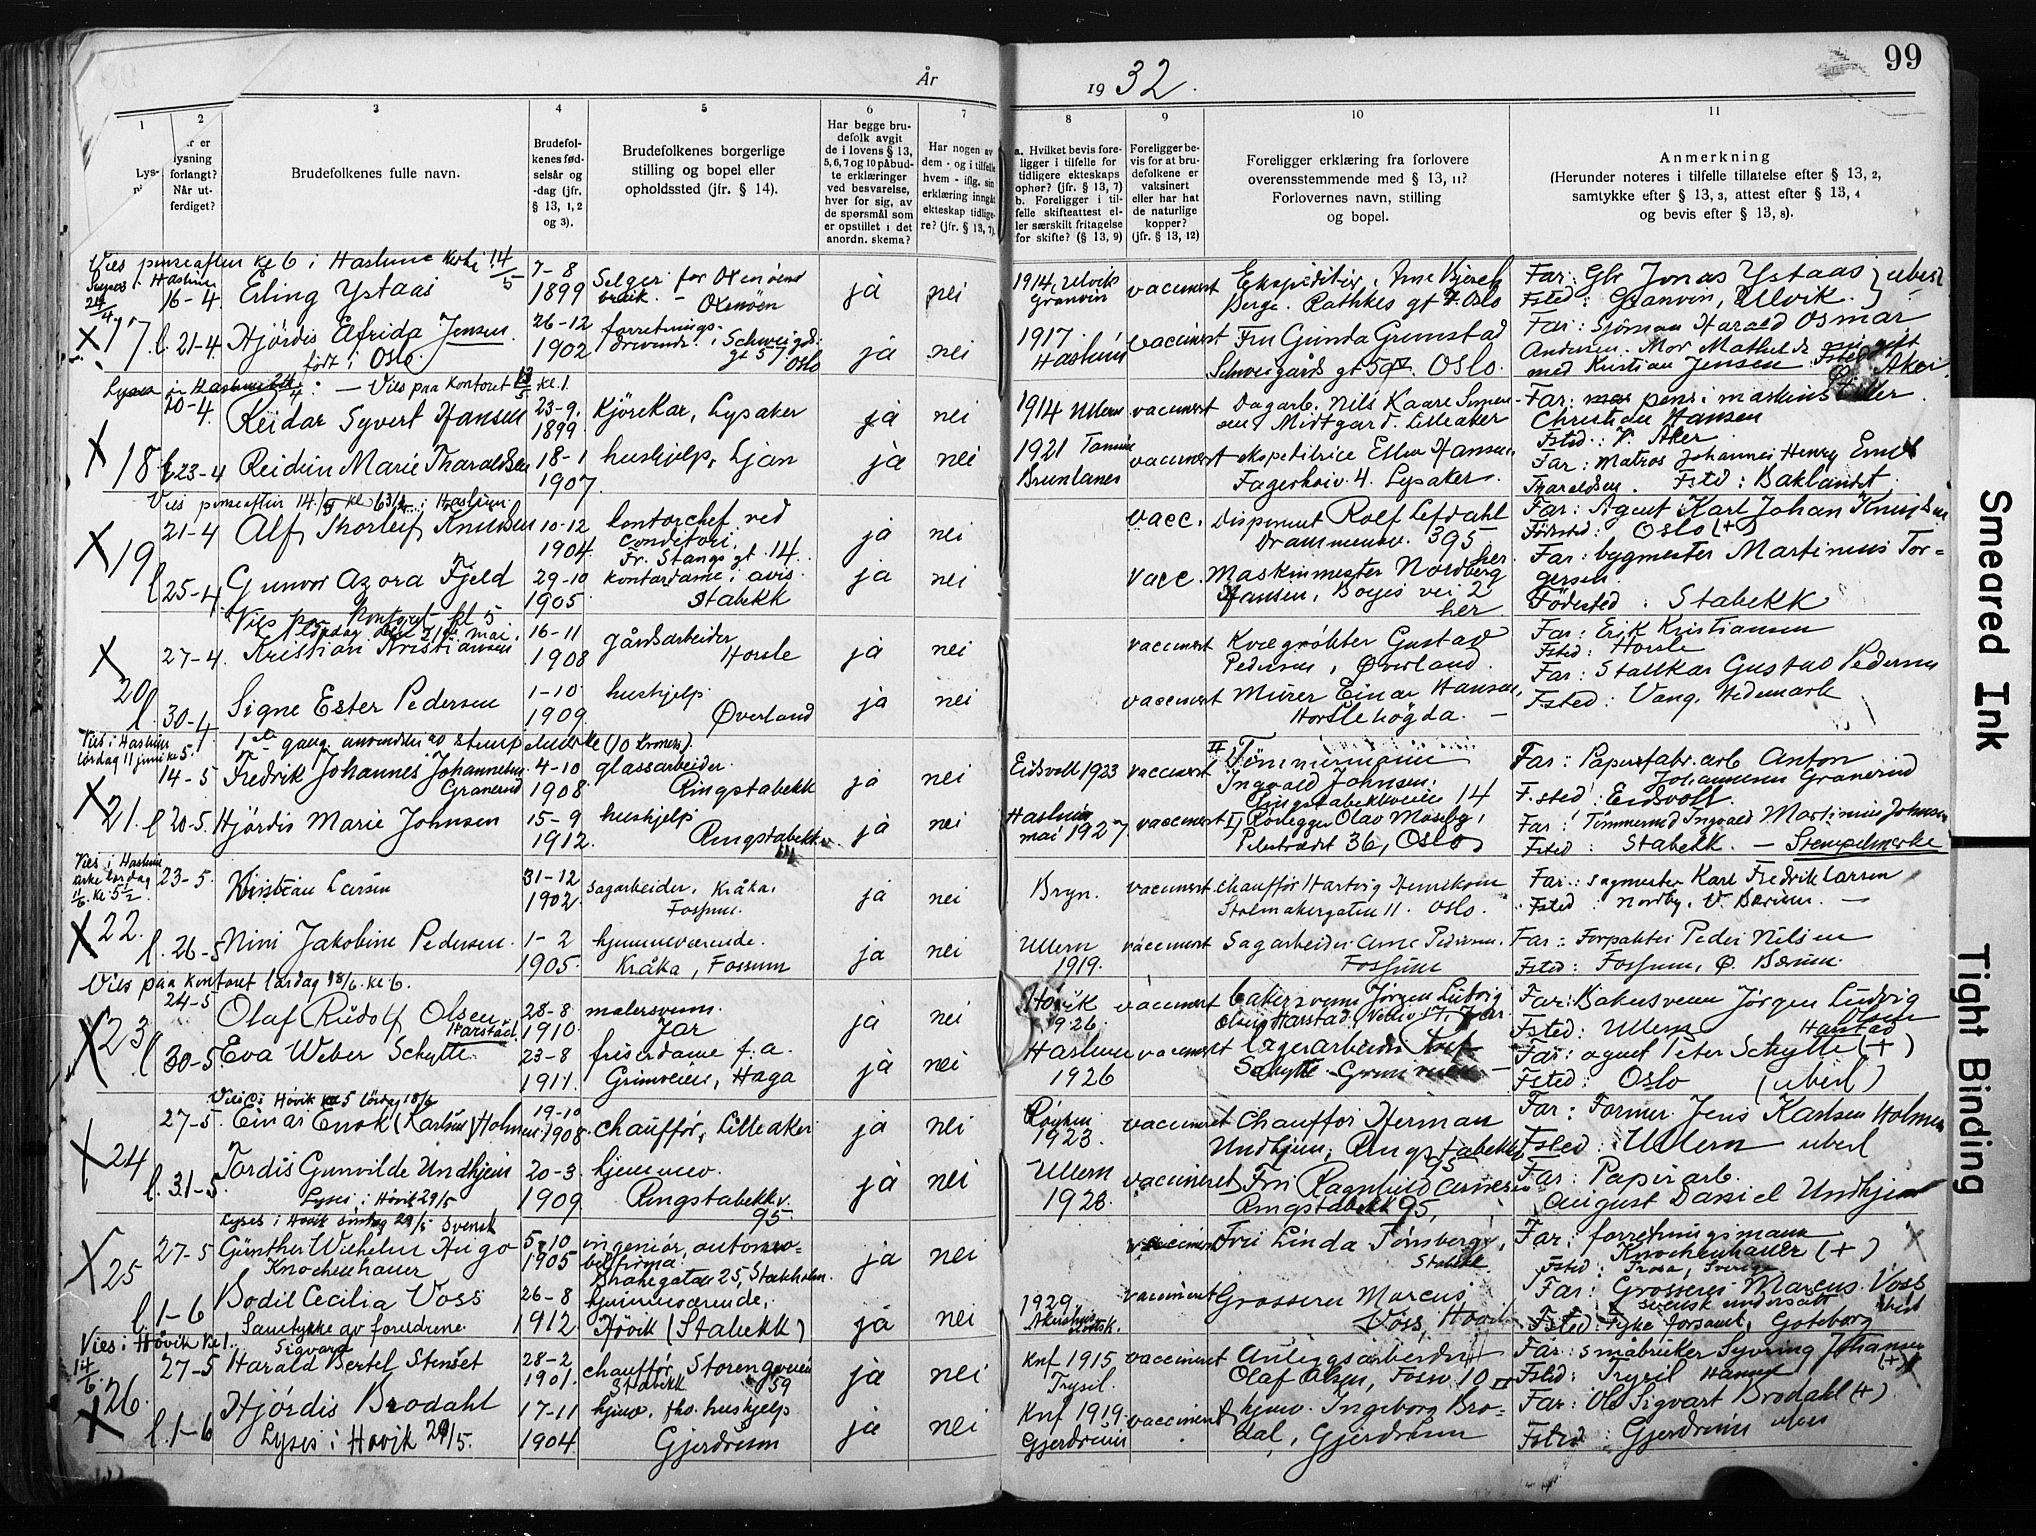 År 1932.
99
1
2
3
4
5
6
7
8
9
10
11
Lys-
er
lysning
forlangt?
Når ut-
ferdiget?
Brudefolkenes fulle navn.
Brudefol-
kenes fød-
selsår og
-dag (jfr.
§ 13, 1, 2
og 3).
Brudefolkenes borgerlige
stilling og bopel eller
opholdssted (jfr. § 14).
Har begge bru-
defolk avgit
de i lovens § 13,
5, 6, 7 og 10 påbud-
te erklæringer
ved besvarelse,
hver for sig, av
de spørsmål som
er opstillet i det
anordn. skema?
Har nogen av
dem - og i tilfelle
hvem - iflg. sin
erklæring inngått
ekteskap tidlige-
re? (jfr. § 13, 7).
a. Hvilket bevis fore-
ligger i tilfelle for
tidligere ekteskaps
ophør? (jfr. § 13, 7)
b. Foreligger i til-
felle skifteattest el-
ler særskilt fritagelse
for skifte? (§ 13, 9)
Foreligger be-
vis for at bru-
defolkene er
vaksinert
eller har hat
de naturlige
kopper?
(jfr. § 13, 12)
Foreligger erklæring fra forlovere
overensstemmende med § 13, 11?
Forlovernes navn, stilling
og bopel.
Anmerkning
(Herunder noteres i tilfelle tillatelse efter § 13, 2,
samtykke efter § 13, 3, attest efter § 13, 4
og bevis efter § 13, 8).
Vies pinseaften kl 6 i Haslum kirke 14/5
16-4 Erling Ystaas 7-8 1899 Selger for Oxenøens bruk - Oxenøen ja nei 1914, Ulvik Granvin vaccinert
Rathkes gt 7. Oslo Far: Gbr Jonas Ystaas
Fsted: Granvin, Ulvik.
X 17 l. 21-4 Hjördis Elfrida Jensen 26-12 1902 forretnings- drivende. Schweigds. gt 57 Oslo ja nei 1917 Haslum vaccinert Fru Gunda Grimstad
født i Oslo. Schweigårds gt 59 IV. Oslo. Far: Sjömann Harald Osmar
Andersen. Mor Mathilde nu gift
med Kristian Jensen Fsted Aker.
Lyses i Haslum 24/4. - Vies paa kontoret 13/5 kl. 1.
20-4. Reidar Syvert Hansen 23-9. 1899. Kjörekar, Lysaker ja nei 1914 Ullern vaccinert Dagarb. Nils Kaare
Midtgard. Lilleaker Far: pens i
Christian Hansen
Fsted: V. Aker
X 18 l 23-4 Reidun Marie Tharaldsen 18-1 1907. hushjelp, Ljan ja nei 1921 Brunlanes vaccinert ekspeditrice Ellen Hansen,
Fagerhøiv. 4. Lysaker. Far: Matros Johannes Henry Emil
Tharaldsen. Fsted: Baklandet.
Vies pinseaften 14/5 kl 6 3/4 i Haslum.
21-4 Alf Thorleif Knudsen 10-12 1904. kontorchef ved Conditori. Fr. Stangs gt. 14. ja nei vacc. Disponent Rolf Lefdahl
Drammensv. 395 her. Far: Agent Karl Johan Knudsen
Födested: Oslo (+)
X 19 l 25-4 Gunvor Azora Fjeld 29-10 1905. kontordame i avis. Stabekk ja nei vacc. Maskinmester Nordberg
Hansen, Boyes vei 2 her Far: bygmester Martinius Tor=
gersen.
Födested: Stabekk
Vies paa kontoret kl 5
lördag den 21de mai.
X 27-4. Kristian Kristiansen 16-11 1908 gårdsarbeider Horsle ja nei vaccinert Kvægrökter Gustav
Pedersen, Øverland. Far: Erik Kristiansen
Fsted: Horsle
20 l. 30-4 Signe Ester Pedersen 1-10 1909. hushjelp. Øverland ja nei vaccinert Murer Einar Hansen,
Horslehögda. - Far: Stallkar Gustav Pedersen
Fsted: Vang, Hedemark
Vies i Haslum lördag 11 juni kl 5.
1ste gang anvendelse av stempelmerke (10 kroner).
14-5 Fredrik Johannes Johannesen Granerud 4-10 1908. glassarbeider. Ringstabekk ja nei Eidsvoll 1923 vaccinert II) Tömmermann
Ingvald Johnsen.
Ringstabekkveien 14 Far: Papirfabr.arb Anton
Johannesen Granerud
F.sted: Eidsvoll.
X 21. l 20-5. Hjördis Marie Johnsen 15-9 1912. hushjelp Ringstabekkv. ja nei Haslum mai 1927 vaccinert I) Rørlegger Olav Moseby,
Pilestrædet 36, Oslo Far: Tömmermd Ingvald Martinius Johnsen
Fsted: Stabekk. - Stempelmerke
Vies i Haslum kirke lørdag 11/6. kl. 5 1/2.
23-5. Kristian Larsen 31-12 1902. sagarbeider, Kråka, Fossum. ja nei Bryn. vaccinert chauffør Hartvig Henriksen
Stolmakergaten 11. Oslo. Far: sagmester Karl Fredrik Larsen
Fsted: Nordby, V. Bærum. -
X 22. l. 26-5 Nini Jakobine Pedersen. 1-2 1905. hjemmeværende. Kråka, Fossum ja nei Ullern 1919. vaccinert Sagarbeider Arne Pedersen.
Fossum Far: Forpakter Peder Nilsen
Fsted: Fossum, Ø. Bærum.
Vies paa kontoret lørdag 18/6. kl. 6.
24-5 Olaf Rudolf Olsen Harstad. 28-8 1910. malersvenn. Jar ja nei Høvik 1926. vaccinert bakersvenn Jörgen Ludvig
Olsen Harstad, Jar. Far: Bakersvenn Jörgen Ludvig
Olsen Harstad
Fsted: Ullern
X 23 l 30-5. Eva Weber Schytte. 23-8 1911. friserdame f.a. Griniveien, Haga ja nei Haslum 1926 vaccinert lagerarbeider
Schytte Griniveien - Far: agent Peter Schytte (+)
Fsted: Oslo (uberl)
Vies i Høvik kl 5 lördag 18/6
27-5. Einar Enok (Karlsen) Holmen 19-10 1908. chauffør, Lilleaker ja nei Röyken 1923. vaccinert Chauffør Herman
Undhjem, Ringstabekkv 95 Far: Former Jens Karlsen Holmen
Fsted: Ullern uberl
X 24 l. 31-5. Tordis Gunvilde Undhjem 20-3. 1909. hjemmev. Ringstabekkv. 95. ja nei Ullern 1923. vaccineret Fru Ragnhild Arnesen
Ringstabekk 95, Far: Papirarb.
August Daniel Undhjem
Lyses i Høvik 29/5
Lyses i Høvik søndag 29/5 Svensk
X 25 27-5 Günther Wilhelm Hugo Knochenhauer 5-10 1905 ingeniør, automo= bilfirma. Brahegatan 25, Stockholm. ja nei vaccinert Fru Linda Tönsberg,
Stabekk Far: forretningsmann
Knochenhauer (+)
Fsted: Trosa, Sverige
l. 1-6 Bodil Cecilia Voss 26-8 1912. hjemmeværende, Høvik (Stabekk) ja nei 1929. vaccinert Grosserer Marcus
Voss, Høvik Far: Grosserer Marcus Voss
svensk undersått
Fsted: Göteborg
Samtykke av foreldrene.
Vies i Høvik kl 1. 14/6.
27-5 Harald Bertel Sigvard Stenset 28-2 1901. chauffør, Storengveien 59 Stabekk ja nei Knf 1915, Trysil. vaccineret Anleggsarbeider
Olaf Olsen, Fossv 10 II Far: småbruker Syvring Johansen (+)
Fsted: Trysil
X 26. l. 1-6 Hjördis Brodahl 17-11 1904. hjemv. fhv. hushjelp Gjerdrum ja nei Knf 1919. Gjerdrum vaccinert hjemv. Ingeborg Bro-
dal, Gjerdrum Far: Ole Sigvart Brodahl (+)
Fsted: Gjerdrum
Lyses i Høvik 29/5.
Smeared Ink
Tight Binding